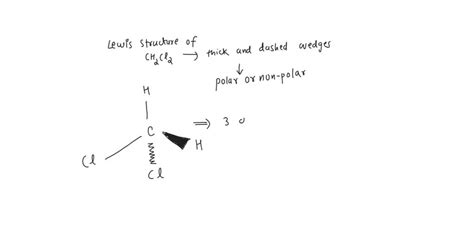 Lewis structure of
CH₂Cl₂ → thick and dashed wedges
↓
polar or non-polar
H
C ⇒ 3 o
H
Cl
Cl